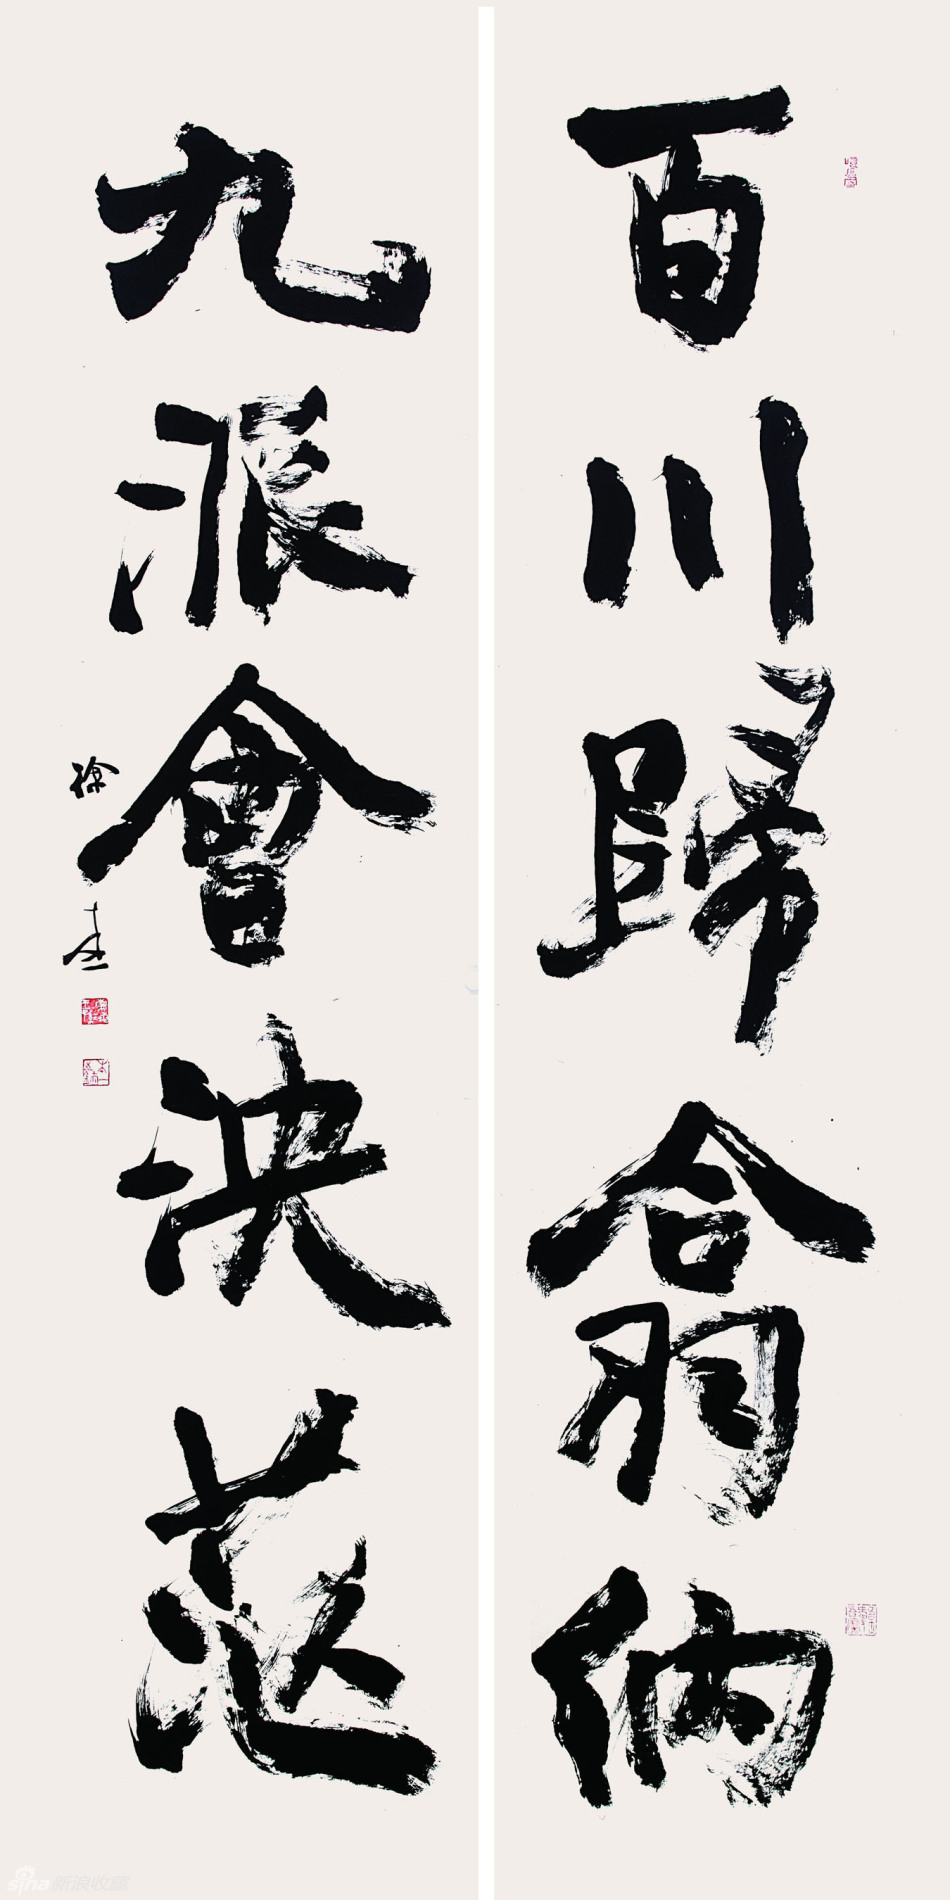 百川歸翕納
九派會泱茫
徐
sina 新浪收藏